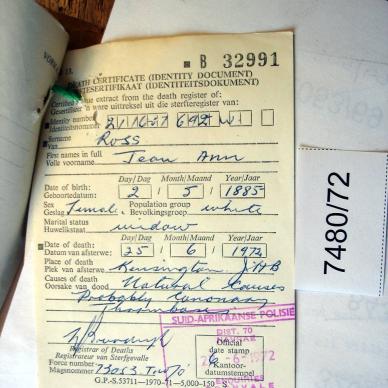 B 32991
DEATH CERTIFICATE (IDENTITY DOCUMENT)
Certified true extract from the death register of:
Gesertifiseer 'n ware uittreksel uit die sterfteregister van:
Identity number
Identiteitsnommer
Surname
Van
Ross
First names in full
Volle voorname
Jean Ann
Day/Dag Month/Maand Year/Jaar
Date of birth:
Geboortedatum:
2 / 5 / 1885
Sex
Geslag
Female
Population group
Bevolkingsgroep
white
Marital status
Huwelikstaat
widow
Day/Dag Month/Maand Year/Jaar
Date of death:
Datum van afsterwe:
25 / 6 / 1972
Place of death
Plek van afsterwe
Kensington JHB
Causes of death
Oorsake van dood
Natural Causes
Probably Coronary
Thrombosis
SUID-AFRIKAANSE POLISIE
DIST. 70
Registrar of Deaths
Registrateur van Sterfgevalle
Official
date stamp
Kantoor-
datumstempel
Force number
Magsnommer
G.P.-S.53711—1970-71—5,000-150
7480/72